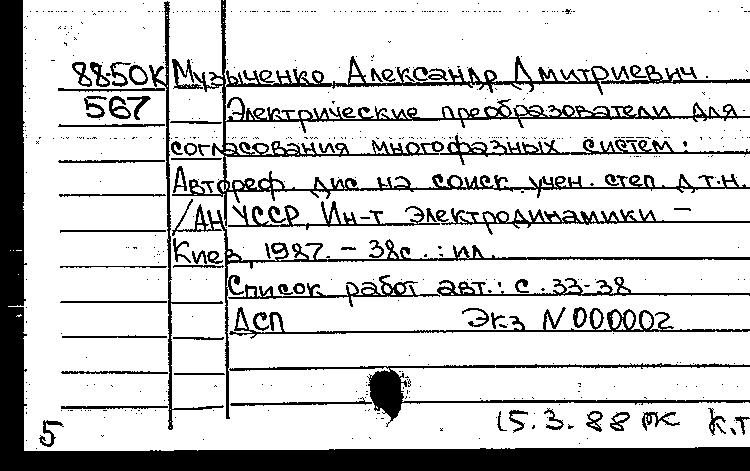 88-50К Музыченко, Александр Дмитриевич.
567 Электрические преобразователи для
согласования многофазных систем:
Автореф. дис. на соиск. учен. степ. д.т.н.
/АН УССР, Ин-т электродинамики. –
Киев, 1987. – 38с. : ил.
Список работ авт.: с. 33-38
ДСП Экз N 000002
15.3.88 К.Т
5